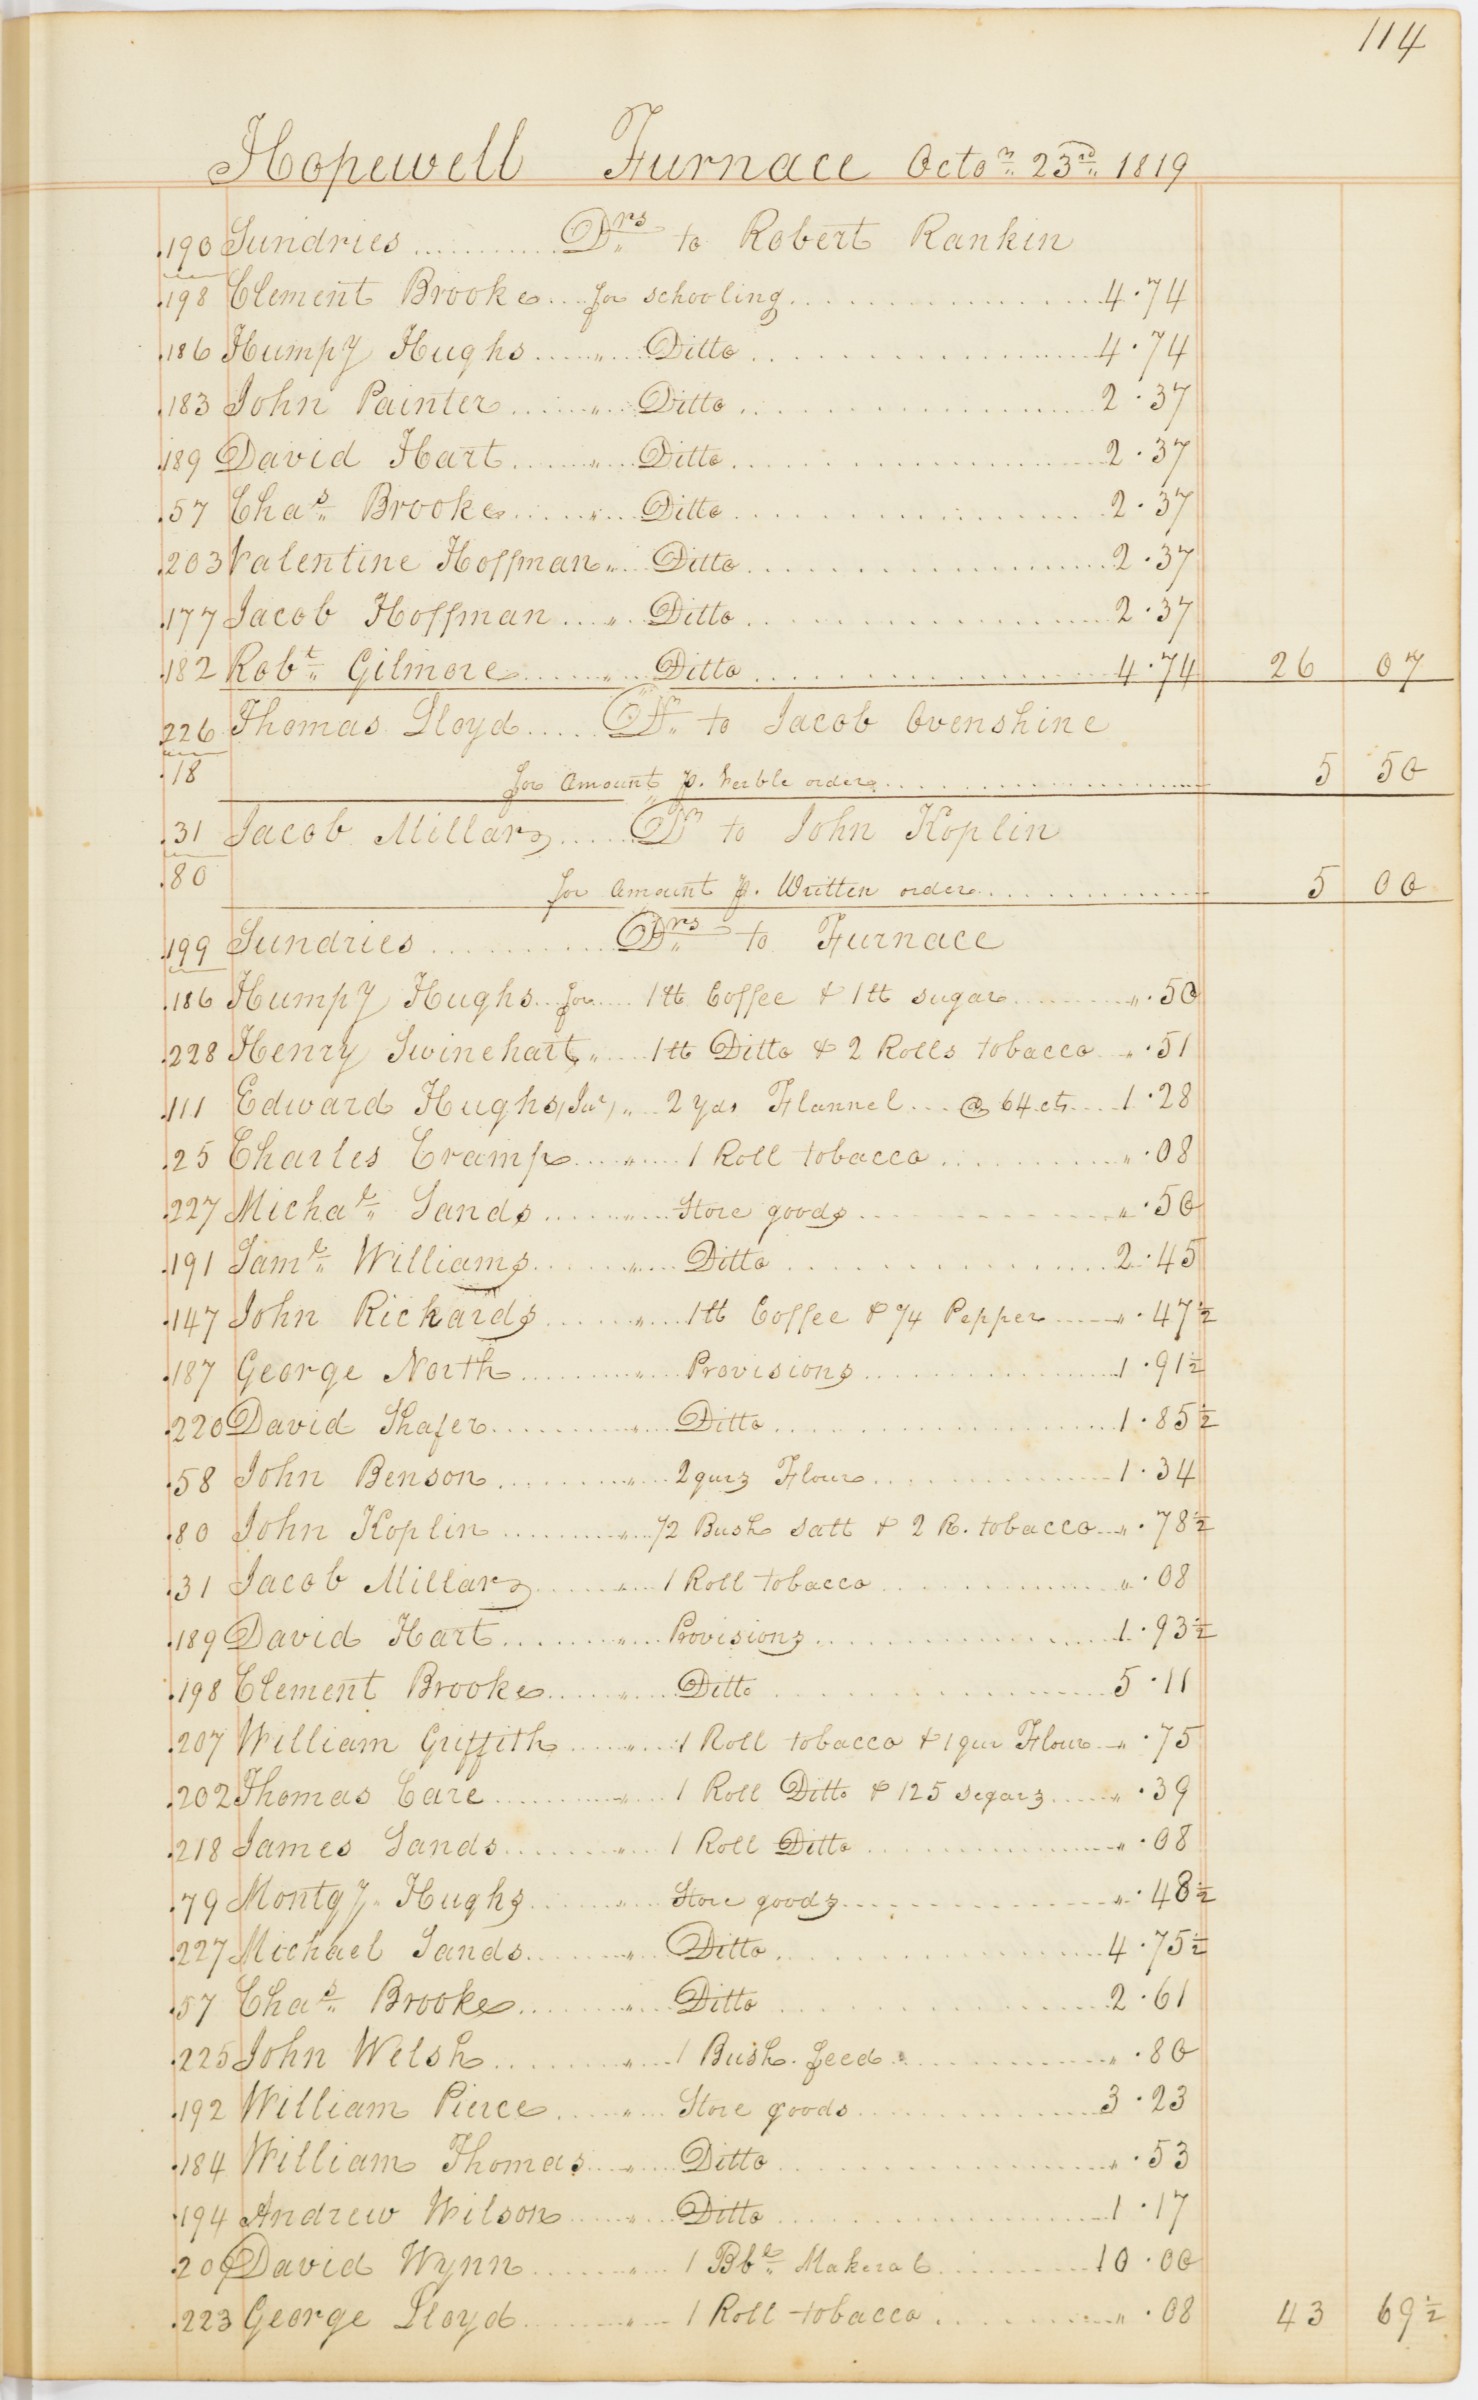 114
Hopewell Furnace Octo.r 23rd 1819
190 Sundries Drs to Robert Rankin
198 Clement Brooke for schooling 4.74
186 Humpy Hughs " Ditto 4.74
183 John Painter " Ditto 2.37
189 David Hart " Ditto 2.37
57 Chas Brooke " Ditto 2.37
203 Valentine Hoffman " Ditto 2.37
177 Jacob Hoffman " Ditto 2.37
182 Robt Gilmore " Ditto 4.74 26 07
226 Thomas Lloyd Dr to Jacob Ovenshine
18 for amount p. Verble order 5 50
31 Jacob Millard Dr to John Koplin
80 for amount p. Written order 5 00
199 Sundries Drs to Furnace
186 Humpy Hughs for 1 lb Coffee & 1 lb sugar " .50
228 Henry Swinehart " 1 lb Ditto & 2 Rolls tobacco " .51
111 Edward Hughs, Junr, " 2 yds Flannel @ 64 cts 1.28
25 Charles Cramp " 1 Roll tobacco " .08
227 Michal Sands " Store goods " .50
191 Saml Williams " Ditto 2.45
147 John Richards " 1 lb Coffee & 1/4 Pepper " .47½
187 George North " Provisions 1.91½
220 David Shafer " Ditto 1.85½
58 John Benson " 2 qurs Flour 1.34
80 John Koplin " 1/2 Bush salt & 2 R. tobacco " .78½
31 Jacob Millard " 1 Roll tobacco " .08
189 David Hart " Provisions 1.93½
198 Clement Brooke " Ditto 5.11
207 William Griffith " 1 Roll tobacco & 1 qur Flour " .75
202 Thomas Care " 1 Roll Ditto & 125 segars " .39
218 James Sands " 1 Roll Ditto " .08
79 Montgy Hughs " Store goods " .48½
227 Michael Sands " Ditto 4.75½
57 Chas Brooke " Ditto 2.61
225 John Welsh " 1 Bush. feed " .80
192 William Pierce " Store goods 3.23
184 William Thomas " Ditto " .53
194 Andrew Wilson " Ditto 1.17
209 David Wynn " 1 Bbl Makeral 10.00
223 George Lloyd " 1 Roll tobacco " .08 43 69½